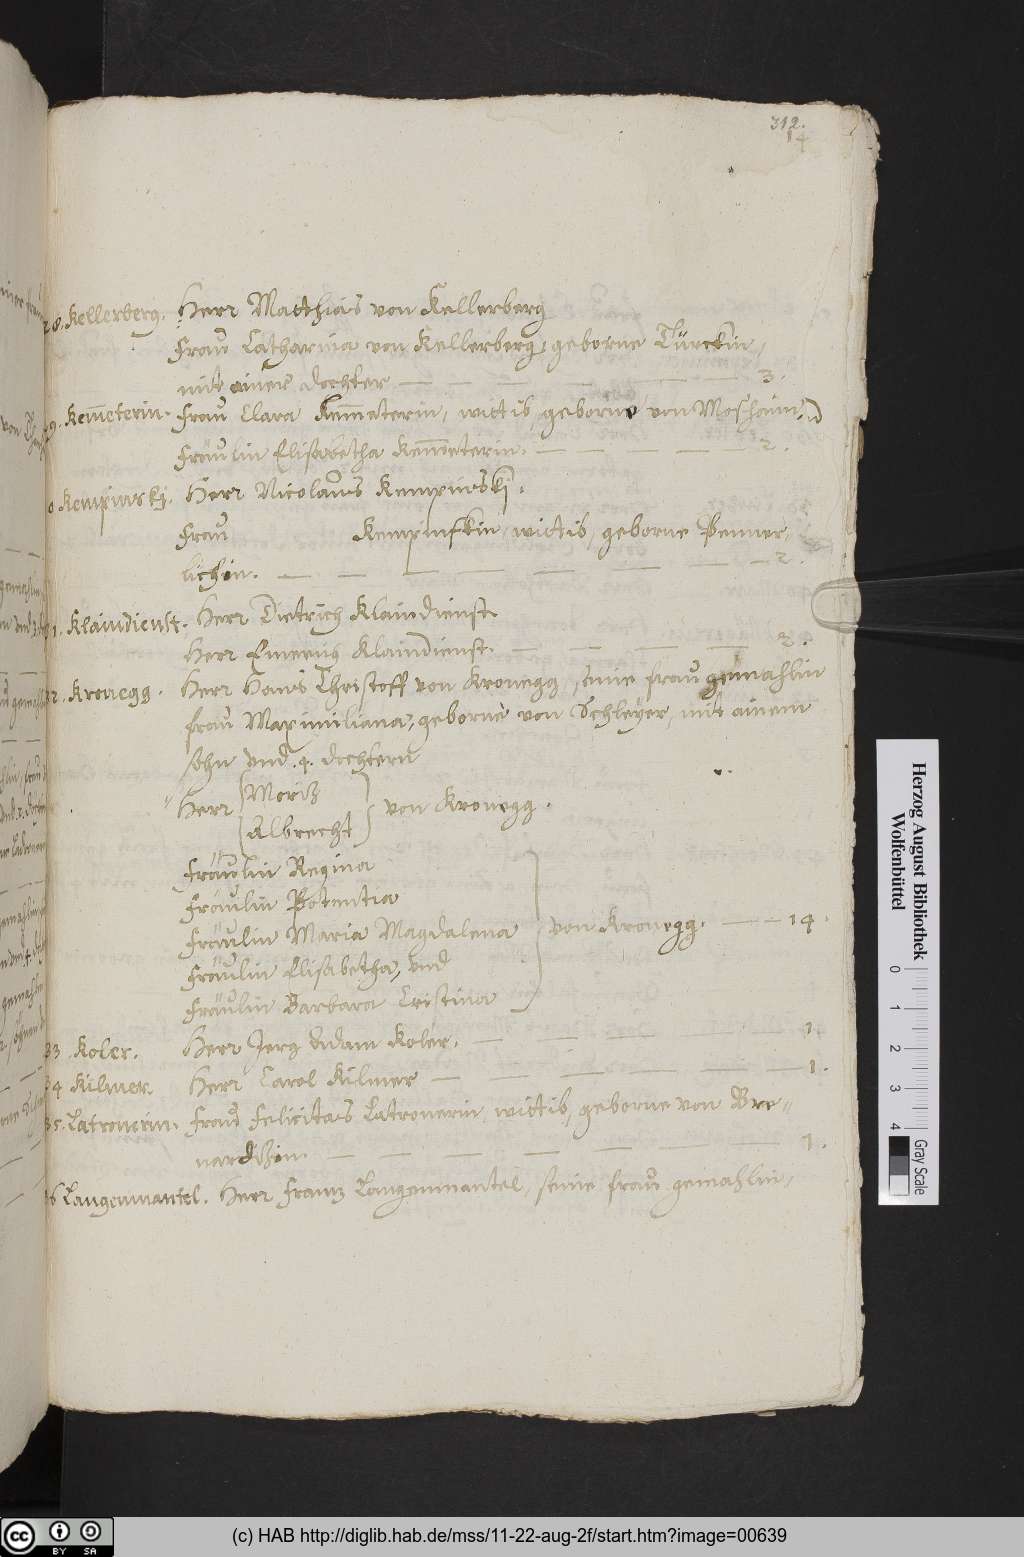 312.
14
28. Kellerberg. Herr Matthias von Kellerberg
Frau Catharina von Kellerberg, geborne Türckin,
mit ainer dochter — — — — — — 3.
29. Kem̄eterin. Frau Clara Kem̄eterin, wittib, geborne von Moshaim,
Fräulin Elisabetha Kem̄eterin. — — — — — 2.
0 Kempinskj. Herr Nicolaus Kempinskj.
Frau Kempinskin, wittib, geborne Penner,,
lichin. — — — — — — — — 2.
1. Klaindienst. Herr Dietrich Klaindienst.
Herr Emerus Klaindienst. — — — — 2.
2. Kronegg. Herr Hans Christoff von Kronegg, seine frau gemahlin
frau Maximiliana, geborne von Schleyer, mit ainem
sohn vnd .4. dochtern
Herr Moritz
Albrecht
von Kronegg.
Fräulin Regina
Fräulin Potentia
Fräulin Maria Magdalena
von Kronegg. — — 14.
Fräulin Elisabetha, vnd
Fräulin Barbara Cristina
33 Koler. Herr Jerg Adam Koler. — — — — 1.
34 Kilmer. Herr Carol Kilmer — — — — — — 1.
35. Latronerin. Frau Felicitas Latronerin, wittib, geborne von Bre,,
nardzin. — — — — — — — 1.
36 Langenmantel. Herr Frantz Langenmantel, seine frau gemahlin,
Herzog August Bibliothek
Wolfenbüttel
0 1 2 3 4
Gray Scale
cc BY SA
(c) HAB http://diglib.hab.de/mss/11-22-aug-2f/start.htm?image=00639